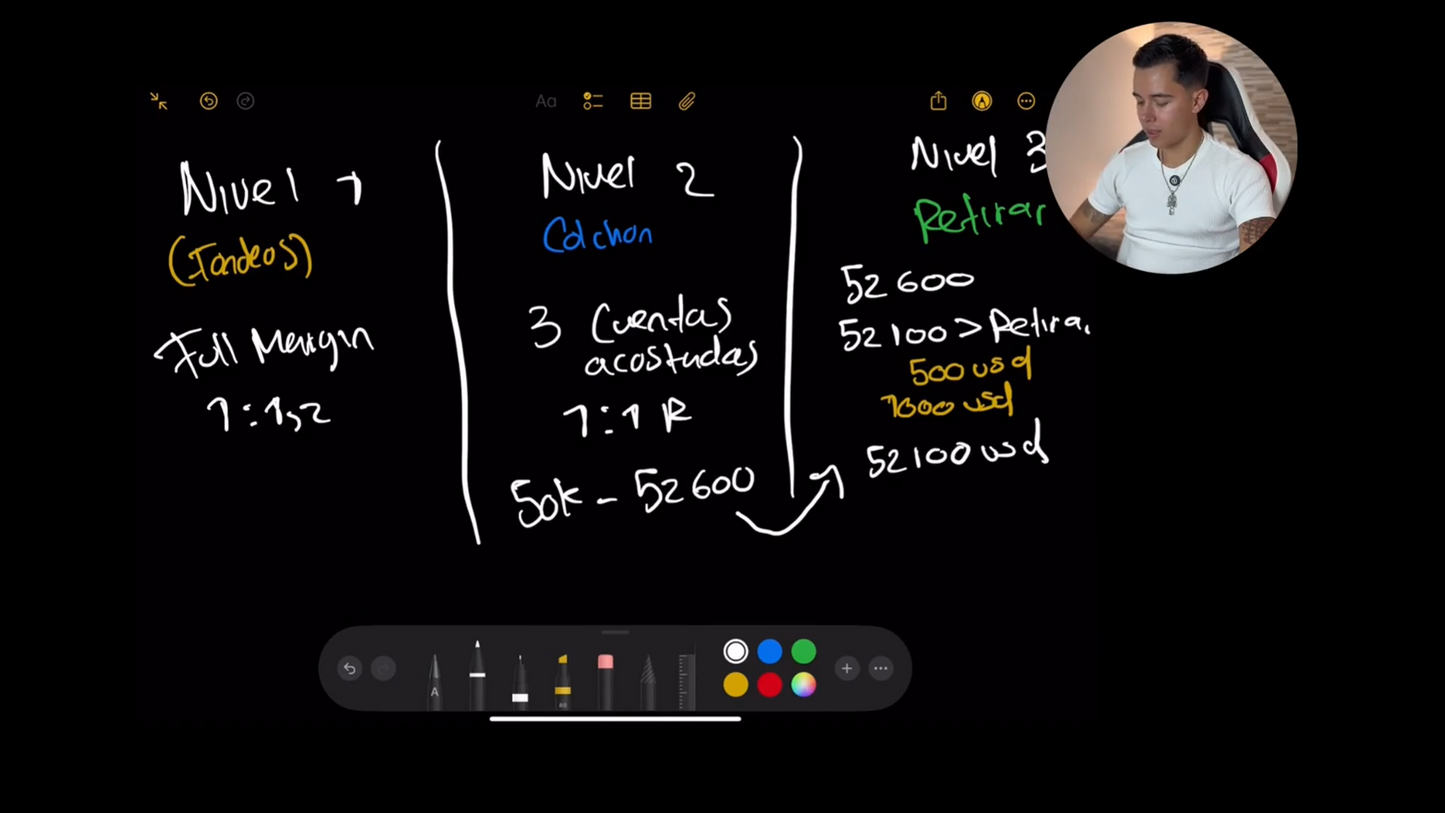 Nivel 1
(Fondeos)
Full Margin
1:1,2
Nivel 2
Colchon
3 Cuentas
acostadas
1:1 R
50k - 52600
Nivel 3
Retirar
52600
52100 > Retirar
500 usd
1000 usd
52100 usd
Aa
A